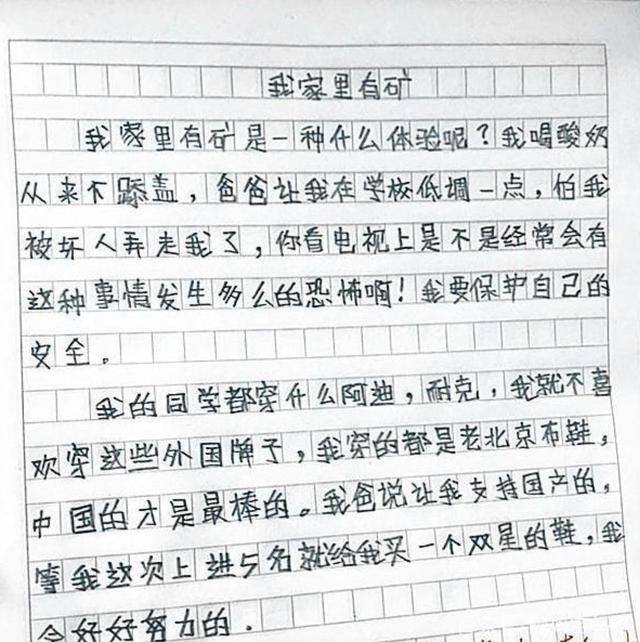 我家里有矿
我家里有矿是一种什么体验呢？我喝酸奶
从来不舔盖，爸爸让我在学校低调一点，怕我
被坏人弄走我了，你看电视上是不是经常会有
这种事情发生多么的恐怖啊！我要保护自己的
安全。
我的同学都穿什么阿迪，耐克，我就不喜
欢穿这些外国牌子，我穿的都是老北京布鞋，
中国的才是最棒的。我爸说让我支持国产的，
等我这次上进5名就给我买一个双星的鞋，我
会好好努力的．